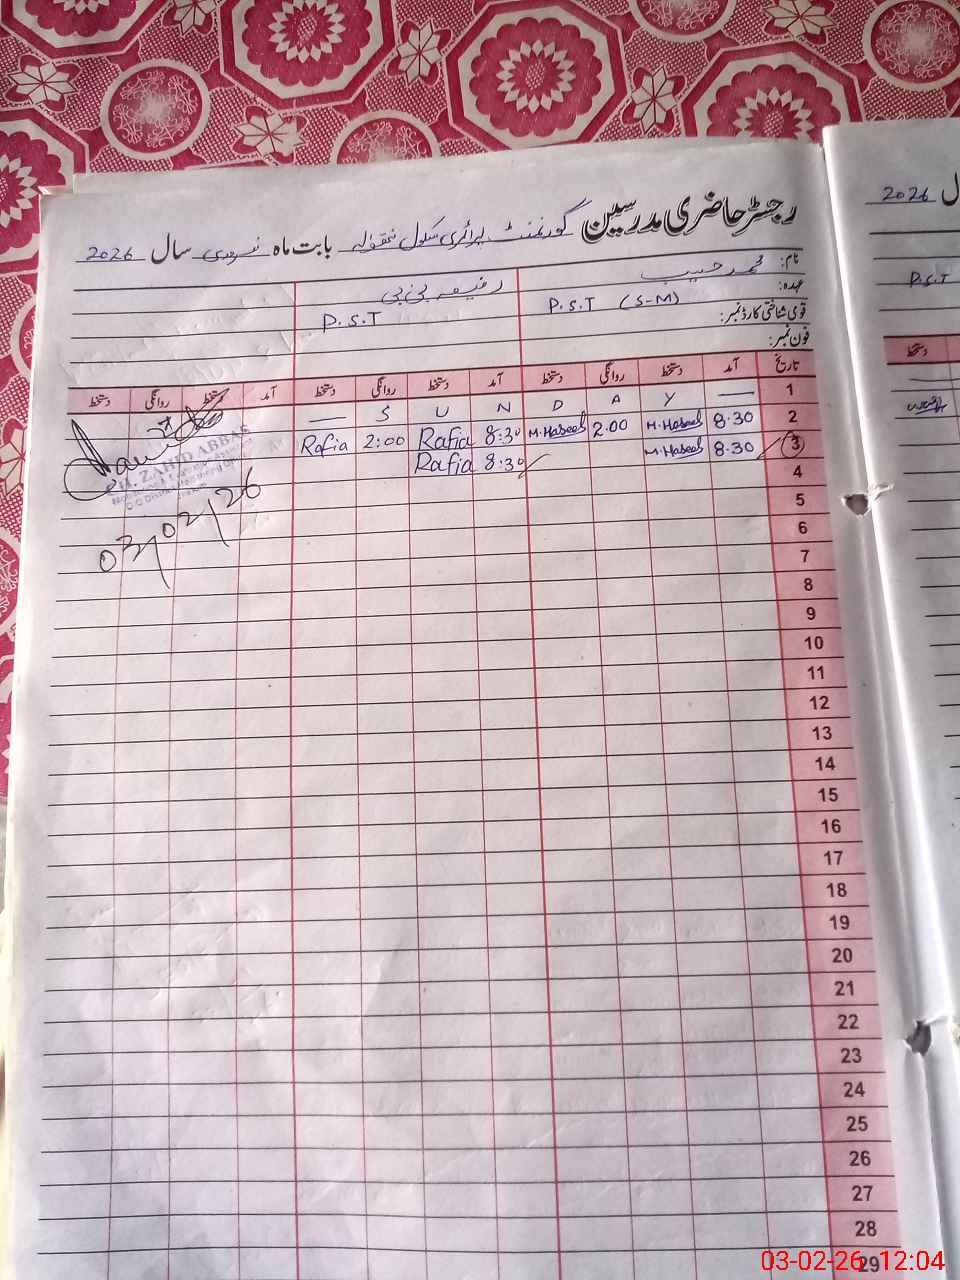 رجسٹر حاضری مدرسین گورنمنٹ پرائری سکول بابت ماہ فروری سال 2026
نام: محمد حسیب رفیعہ بی بی
عہدہ: P.S.T (S-M) P.S.T
قومی شناختی کارڈ نمبر:
فون نمبر:
تاریخ آمد دستخط روانگی دستخط آمد دستخط روانگی دستخط آمد دستخط روانگی دستخط
1 — Y A D N U S —
2 8.30 M.Haseeb 2.00 M.Haseeb 8:30 Rafia 2:00 Rafia
3 8.30 M.Haseeb 8:30 Rafia
CH. ZAHID ABBAS
03/02/26
4
5
6
7
8
9
10
11
12
13
14
15
16
17
18
19
20
21
22
23
24
25
26
27
28
29
سال 2026
P.S.T
دستخط
03-02-26 12:04